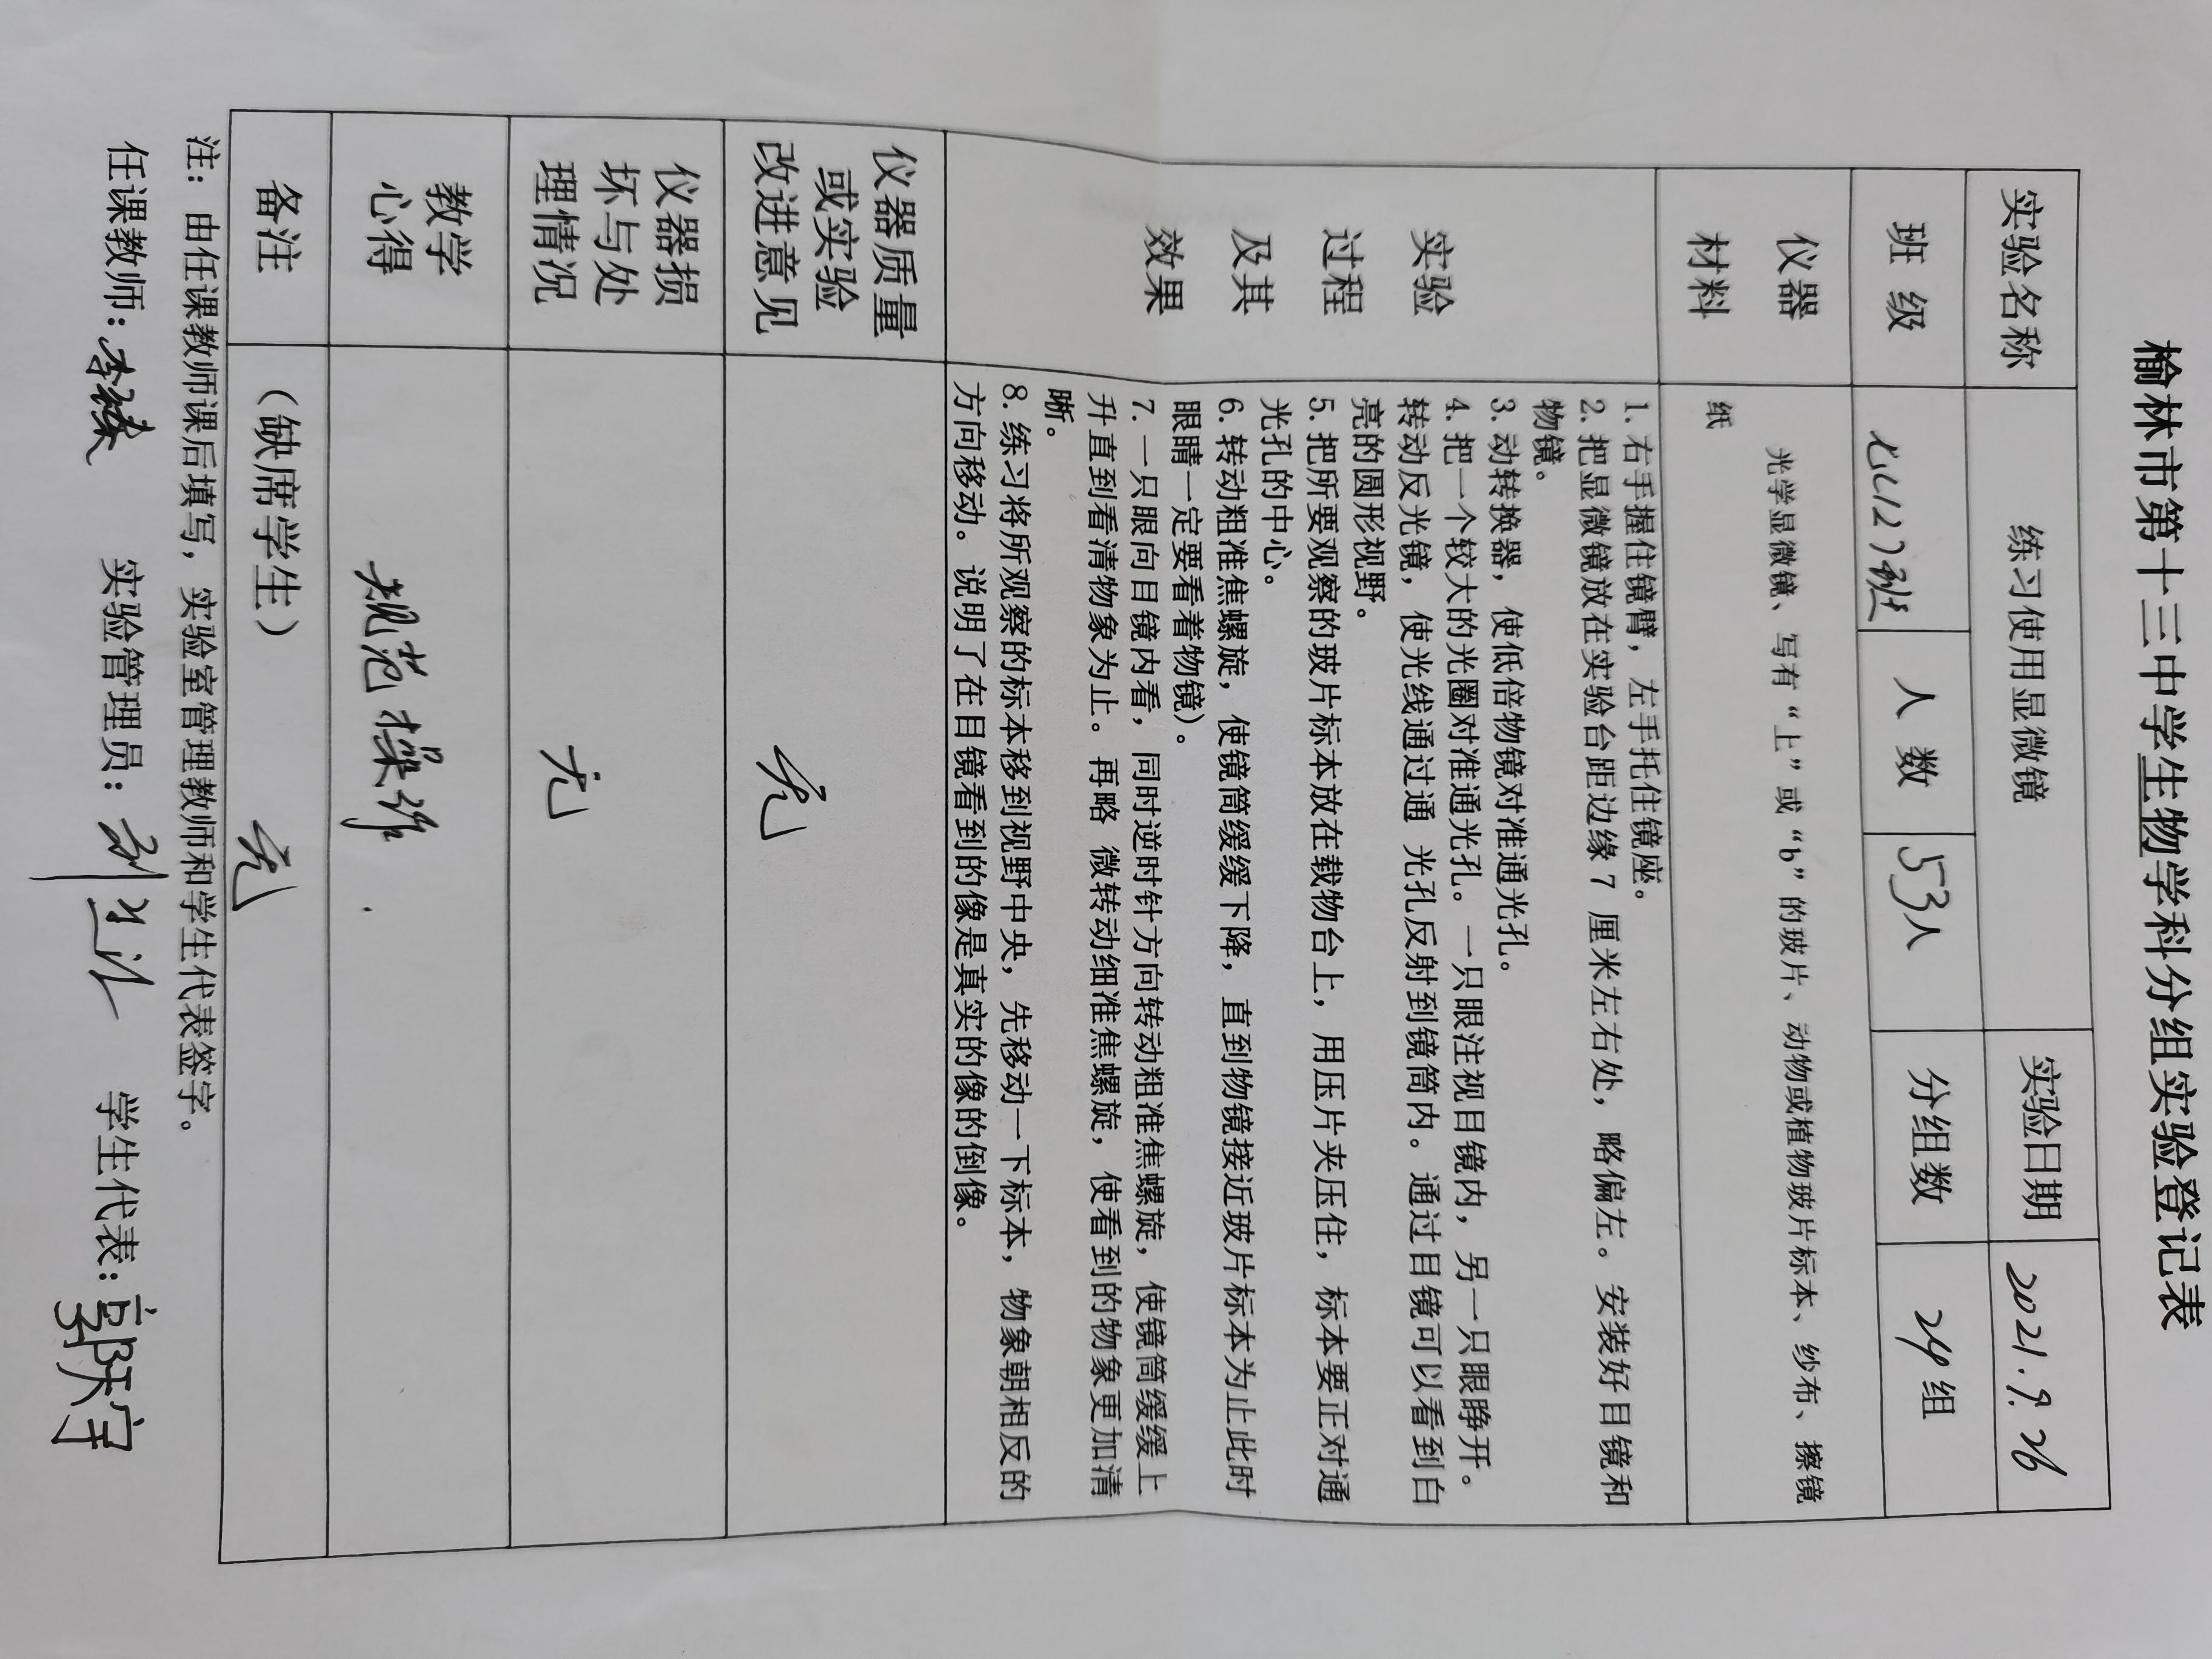 榆林市第十三中学生物学科分组实验登记表
实验名称 练习使用显微镜 实验日期 2021.9.26
班 级 七(12)班 人 数 53人 分组数 24 组
仪器
材料
光学显微镜、写有“上”或“b”的玻片、动物或植物玻片标本、纱布、擦镜
纸
实验
过程
及其
效果
1. 右手握住镜臂，左手托住镜座。
2. 把显微镜放在实验台距边缘 7 厘米左右处，略偏左。安装好目镜和
物镜。
3. 动转换器，使低倍物镜对准通光孔。
4. 把一个较大的光圈对准通光孔。一只眼注视目镜内，另一只眼睁开。
转动反光镜，使光线通过通 光孔反射到镜筒内。通过目镜可以看到白
亮的圆形视野。
5. 把所要观察的玻片标本放在载物台上，用压片夹压住，标本要正对通
光孔的中心。
6. 转动粗准焦螺旋，使镜筒缓缓下降，直到物镜接近玻片标本为止此时
眼睛一定要看着物镜）。
7. 一只眼向目镜内看，同时逆时针方向转动粗准焦螺旋，使镜筒缓缓上
升直到看清物象为止。再略 微转动细准焦螺旋，使看到的物象更加清
晰。
8. 练习将所观察的标本移到视野中央，先移动一下标本，物象朝相反的
方向移动。说明了在目镜看到的像是真实的像的倒像。
仪器质量
或实验
改进意见
无
仪器损
坏与处
理情况
无
教学
心得
规范操作
备注 （缺席学生） 无
注：由任课教师课后填写，实验室管理教师和学生代表签字。
任课教师：李 实验管理员：刘 学生代表：郭天宇